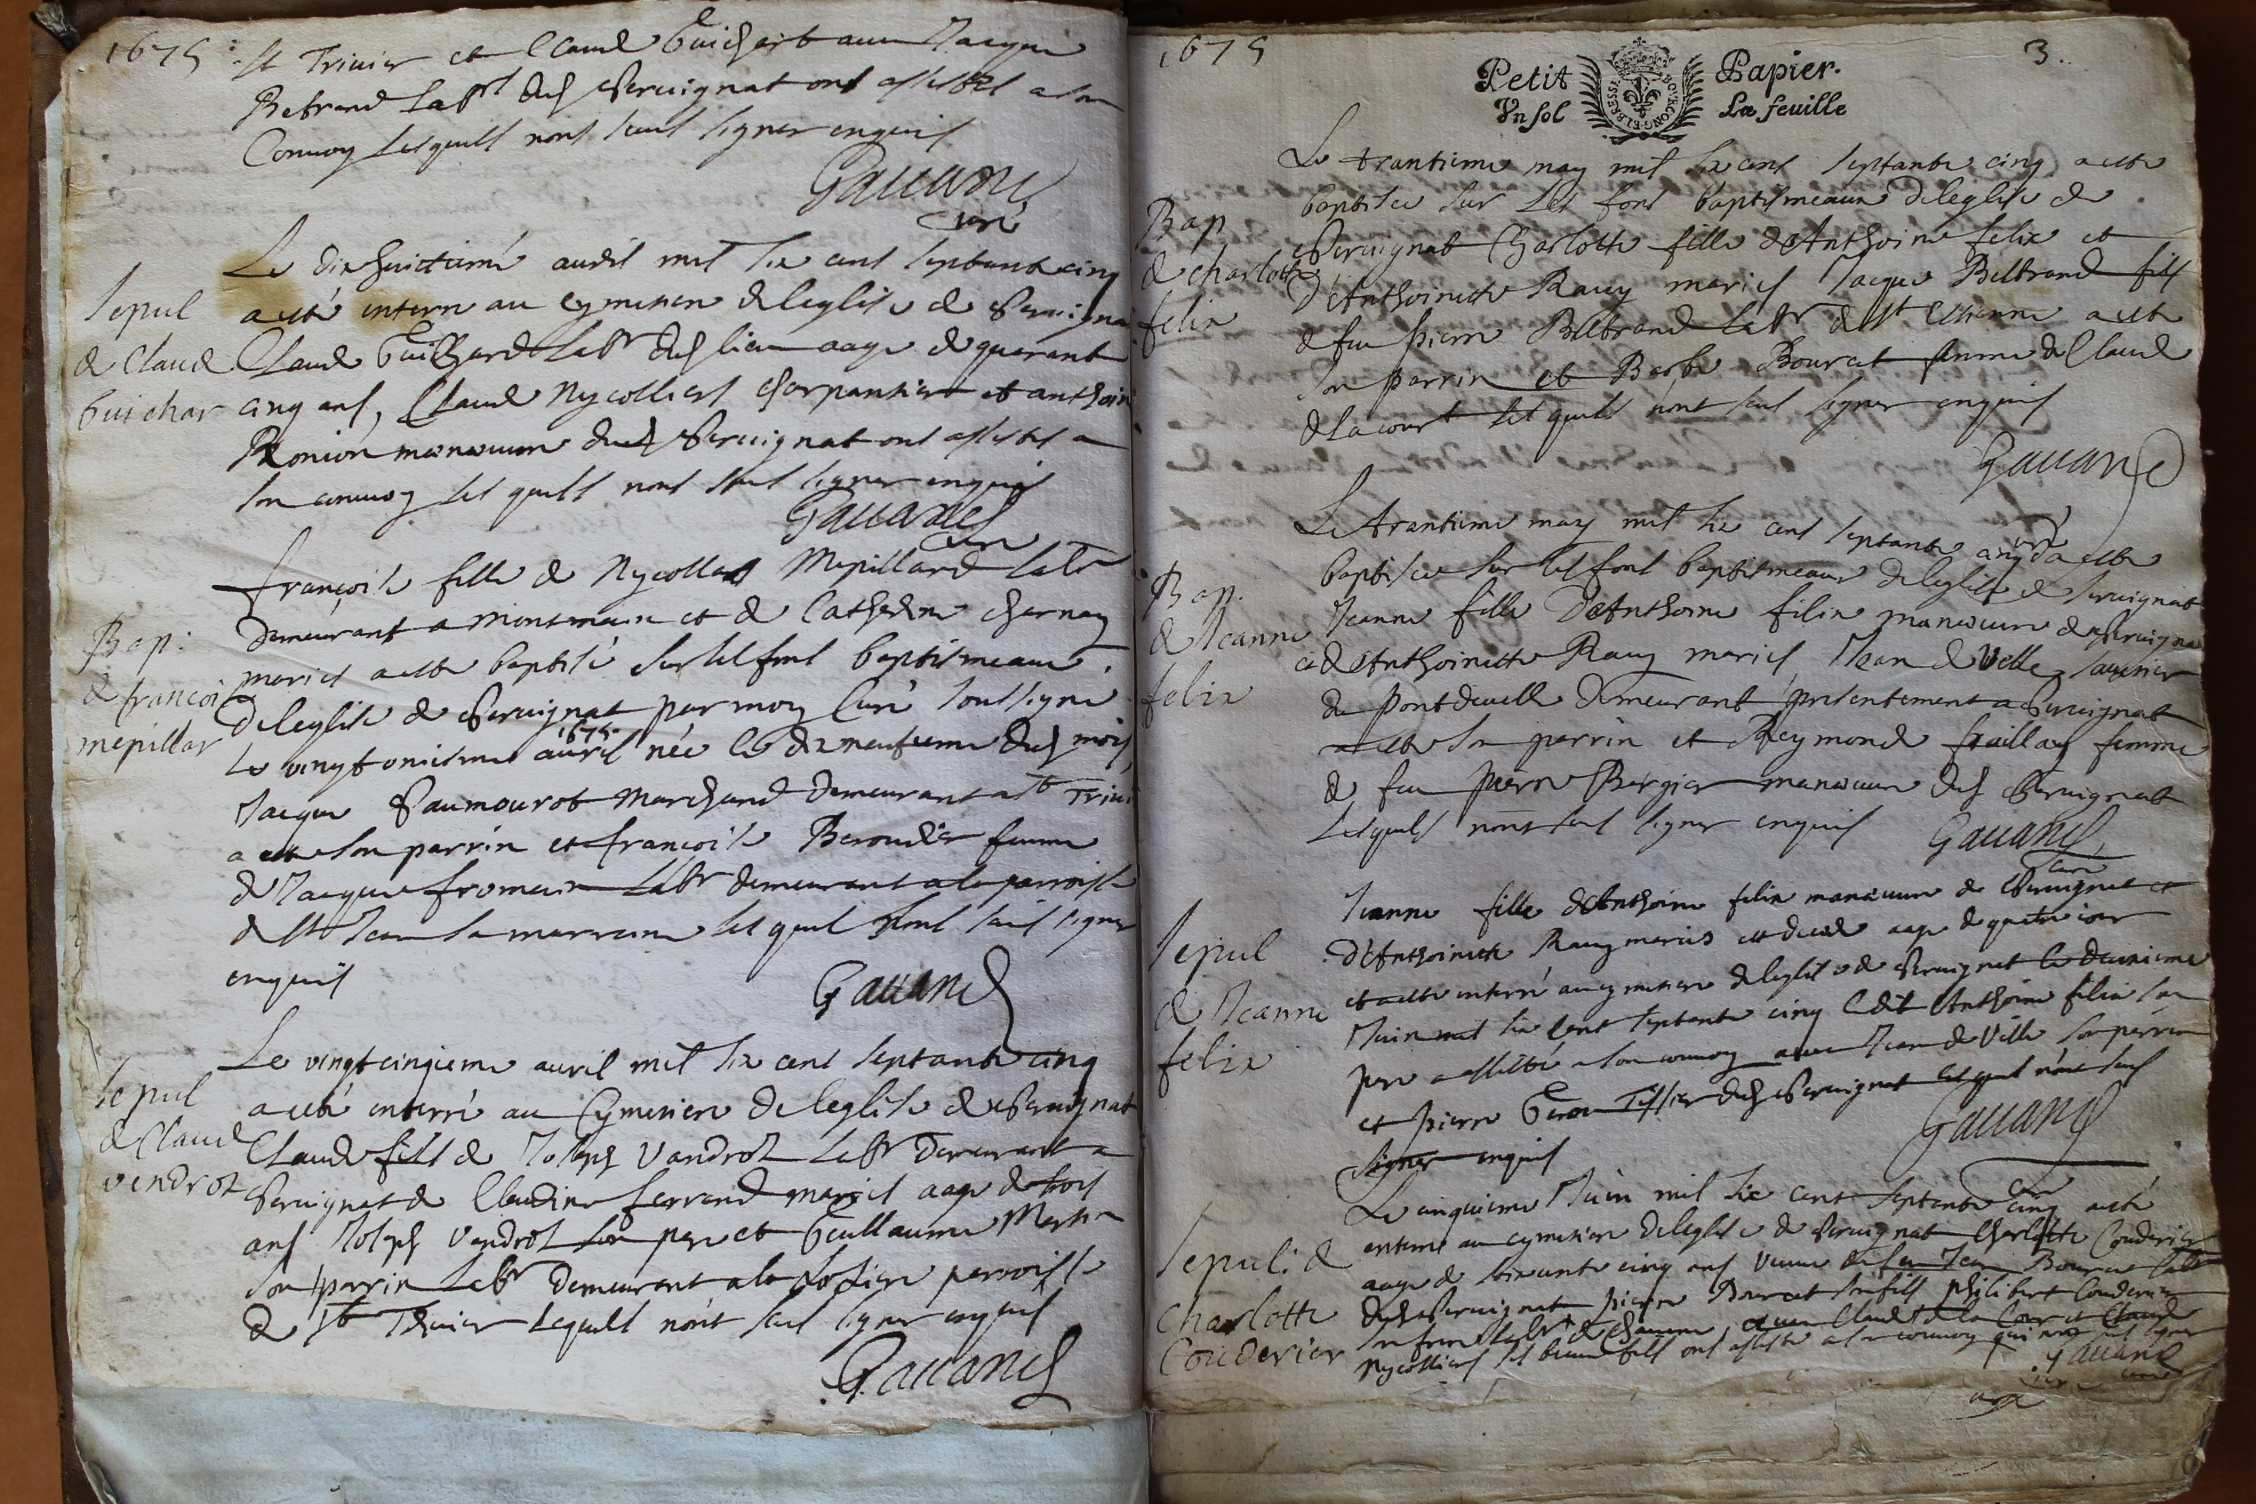 1675
St Trivier et Claud Guichert avec Jacque
Betrand labr dud Servignat ont assistes a son
Convoy lesquels nont sceus signer enquis
Gauand
curé
Sepul
de Claud
Guichar
Le dix huictiemé auril mil six cent septante cinq
a esté enterre au cymetiere de leglise de Servignat
Claud Guichard labr dud lieu aage de quarante
cinq ans, Claud Nycollies charpantier et anthoine
manouure dud Servignat ont assistes a
son convoy lesquels nont sceus signer enquis
Gauand
curé
Bap:
de francoise
mepillar
françoise fille de Nycollas Mepillard labr
demeurant a montmain et de Catherine charnay
maries a esté baptisé sur les fons baptismeaux
de leglise de Servignat par moy Curé soussigné
le vingt unieme auril 1675 née le dixneufieme dud mois
Jacque Paumourot marchand demeurant a St Trivier
a esté son parrin et françoise Beroudier femme
de Jacque fromein labr demeurant a la parroisse
de St Jean sa marraine lesquel nont sceus signer
enquis
Gauand
Sepul
de Claud
vendrot
Le vingt cinqieme auril mil six cent septante cinq
a esté enterré au Cymetiere de leglise de Servignat
Claude fils de Joseph Vandrot labr demeurant a
Servignat de Claudine ferrand maries aage de trois
ans Joseph Vendrot son pere et Guillaume Martin
son parrin labr demeurant a la parroisse
de St Trivier lequels nont sceus signer enquis
Gauand
1675
3.
Petit Papier.
Vn sol La feuille
BOVRGONG-E BRESSE
Bap
de charlotte
felix
Le trantieme may mil six cent septante cinq a esté
baptisee sur les fons baptismeaux de leglise de
Servignat Charlotte fille d'Anthoine felix et
d'Anthoinette Rauy maries Jacque Beltrand fils
de fu pierre Beltrand labr de St Estienne a esté
son parrin et Barbe Bourcet femme de Claud
de Lacourt lesquels nont sceus signer enquis
Gauand
curé
Bap.
de Jeanne
felix
Le trantieme may mil six cent septante cinq a esté
baptisee sur les fons baptismeaux de leglise de Servignat
Jeanne fille d'Anthoine felix manouure de Servignat
et de Anthoinette Rauy maries Jean de Velle sauetier
du pont deuelle demeurant presentement a Servignat
a esté son parrin et Reymonde fuillay femme
de feu pierre Bergier manouure dud Servignat
Lesquels nont sceus signer enquis
Gauand
curé
Sepul
de Jeanne
felix
Jeanne fille d'Anthoine felix manouure de Servignat et
d'Anthoinette Rauy maries est decede aage de quatre iour
et a esté enterré au cymetiere de leglise de Servignat le deuxieme
Juin mil six cent septante cinq ledit Anthoine felix son
pere a assisté a son convoy avec Jean de Ville son parrin
et pierre Tissier dud Servignat lesquel nont sceus
signer enquis
Gauand
curé
Sepul: de
Charlotte
Couderier
Le cinquieme Juin mil six cent septante cinq a esté
enterré au cymetiere de leglise de Servignat Charlotte Couderier
aage de soixante cinq ans veuue de feu Jean Bourcet labr
dud Servignat pierre Bourcet son fils philibert Couderier
son frere labr de avec Claud de la Cour et Claud
Nycollies ses beaux fils ont assisté a son convoy qui nont sceus signer
Gauand
curé